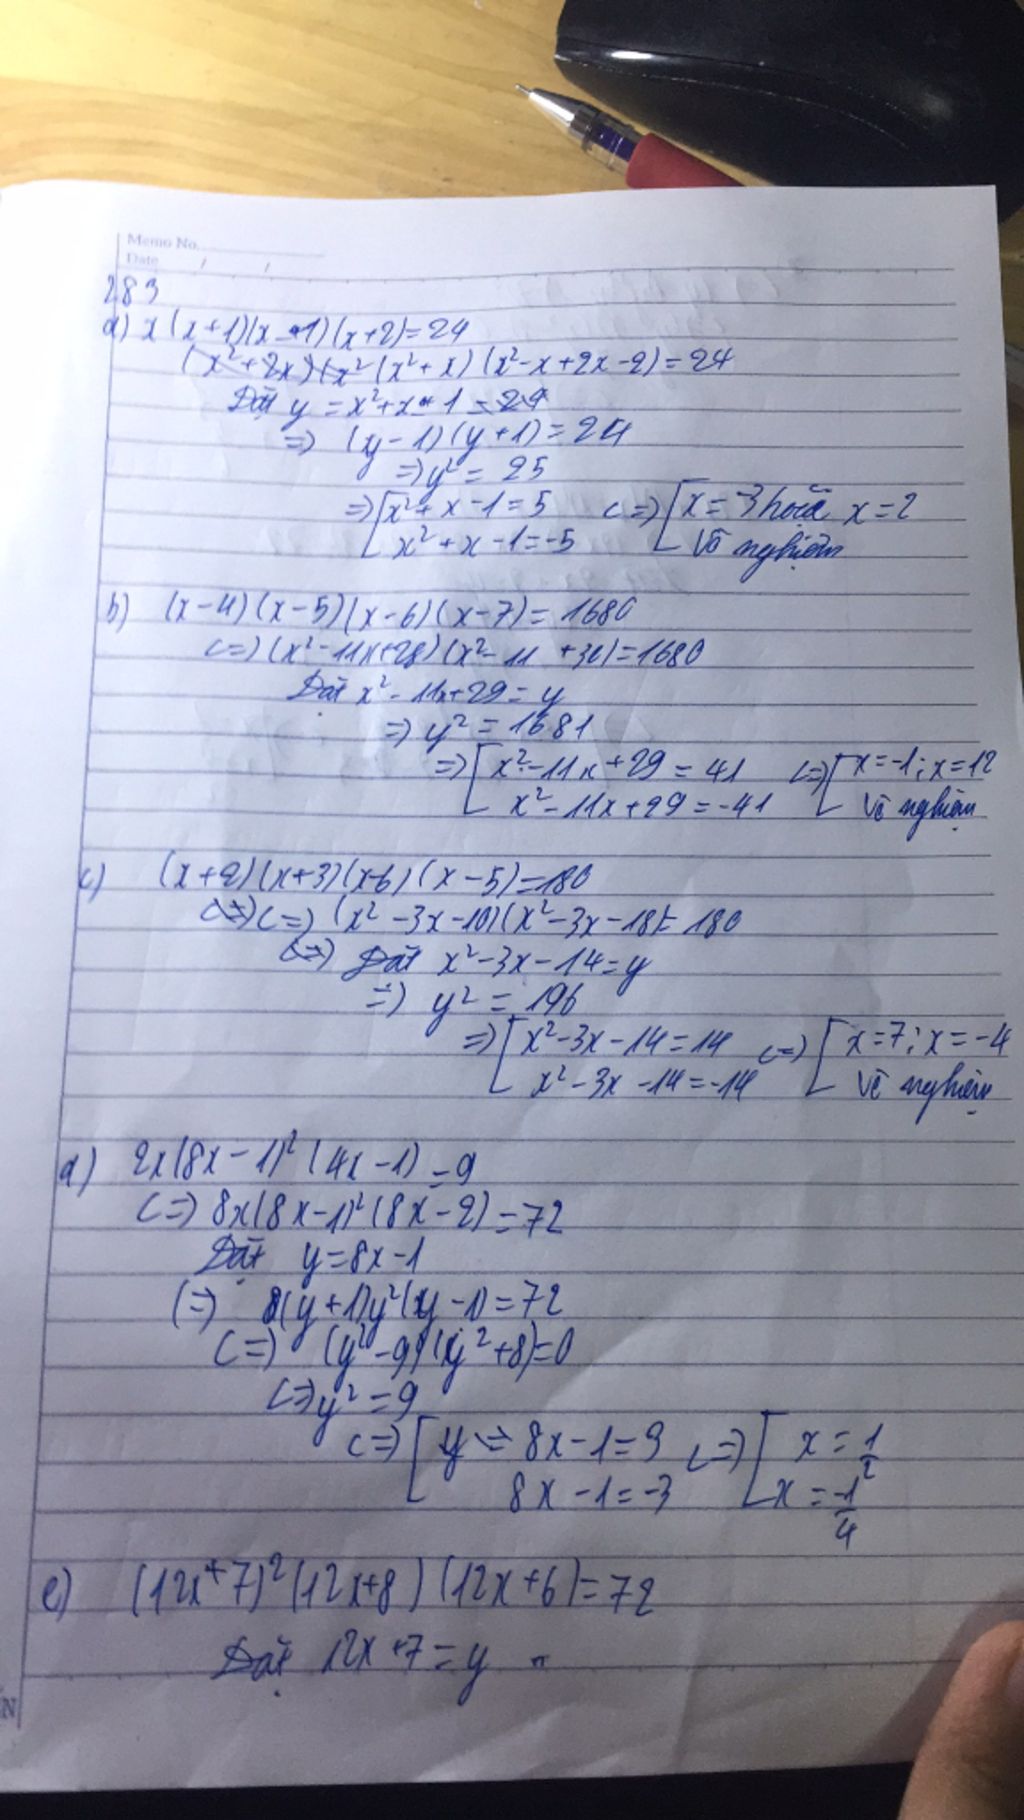 Memo No.
Date / /
283
a) x(x+1)(x-1)(x+2)=24
(x²+2x)(x² (x²+x)(x²-x+2x-2)=24
Đặt y = x²+x-1 = 24
=> (y-1)(y+1)=24
=> y² = 25
=> [x²+x-1=5 <=> [x=-3 hoặc x=2
x²+x-1=-5 Vô nghiệm
b) (x-4)(x-5)(x-6)(x-7)=1680
<=> (x²-11x+28)(x²-11 +30)=1680
Đặt x²-11x+29=y
=> y² = 1681
=> [x²-11x+29=41 <=> [x=-1; x=12
x²-11x+29=-41 Vô nghiệm
c) (x+2)(x+3)(x-6)(x-5)=180
<=> <=> (x²-3x-10)(x²-3x-18)=180
<=> Đặt x²-3x-14=y
=> y² = 196
=> [x²-3x-14=14 <=> [x=7; x=-4
x²-3x-14=-14 Vô nghiệm
d) 2x(8x-1)²(4x-1)=9
<=> 8x(8x-1)²(8x-2)=72
Đặt y=8x-1
<=> (y+1)y²(y-1)=72
<=> (y²-9)(y²+8)=0
<=> y²=9
<=> [y <=> 8x-1=3 <=> [x=1/2
8x-1=-3 x=-1/4
e) (12x+7)²(12x+8)(12x+6)=72
Đặt 12x+7=y